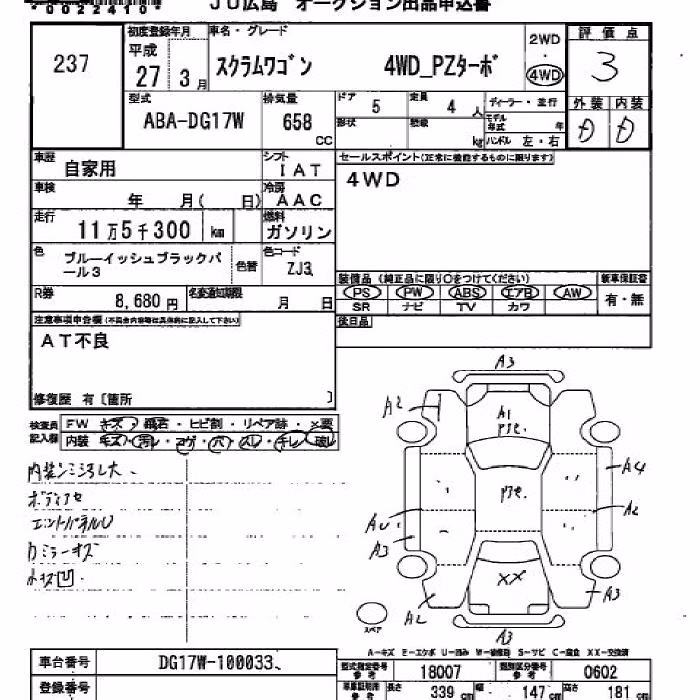 0022410
JU広島 オークション出品申込書
237
初度登録年月
平成
27 3月
車名・グレード
スクラムワゴン 4WD_PZターボ
2WD
・
4WD
評価点
3
型式
ABA-DG17W
排気量
658
CC
ドア 5
定員 4 人
形状
積載 kg
ディーラー・並行
モデル年式 年
ハンドル 左・右
外装 内装
D D
車歴 自家用
シフト IAT
車検 年 月( 日)
冷房 AAC
走行 11万5千300 km
燃料 ガソリン
色 ブルーイッシュブラックパール3
色替
色コード ZJ3
R券 8,680円
名変通知期限 月 日
セールスポイント(正常に機能するものに限ります)
4WD
装備品(純正品に限り○をつけてください)
新車保証書
PS PW ABS エアB AW
SR ナビ TV カワ
有・無
後日品
注意事項申告欄(不具合内容等は具体的に記入して下さい)
AT不良
修復歴 有〔箇所 〕
検査員記入欄
FW キズ・飛石・ヒビ割・リペア跡・×要
内装 キズ・汚レ・コゲ・穴・スレ・キレ・破レ
内装シミ汚レ大
ボディアセ
カミラーキズ
A3
A2
A1
P2E.
P2E.
A4
A2
A3
A3
XX
A2
A3
スペア
A-キズ E-エクボ U-凹み W-補修跡 S-サビ C-腐食 XX-交換済
車台番号 DG17W-100033
登録番号
型式指定番号 参考 18007
類別区分番号 参考 0602
長さ 339 cm 幅 147 cm 高さ 181 cm